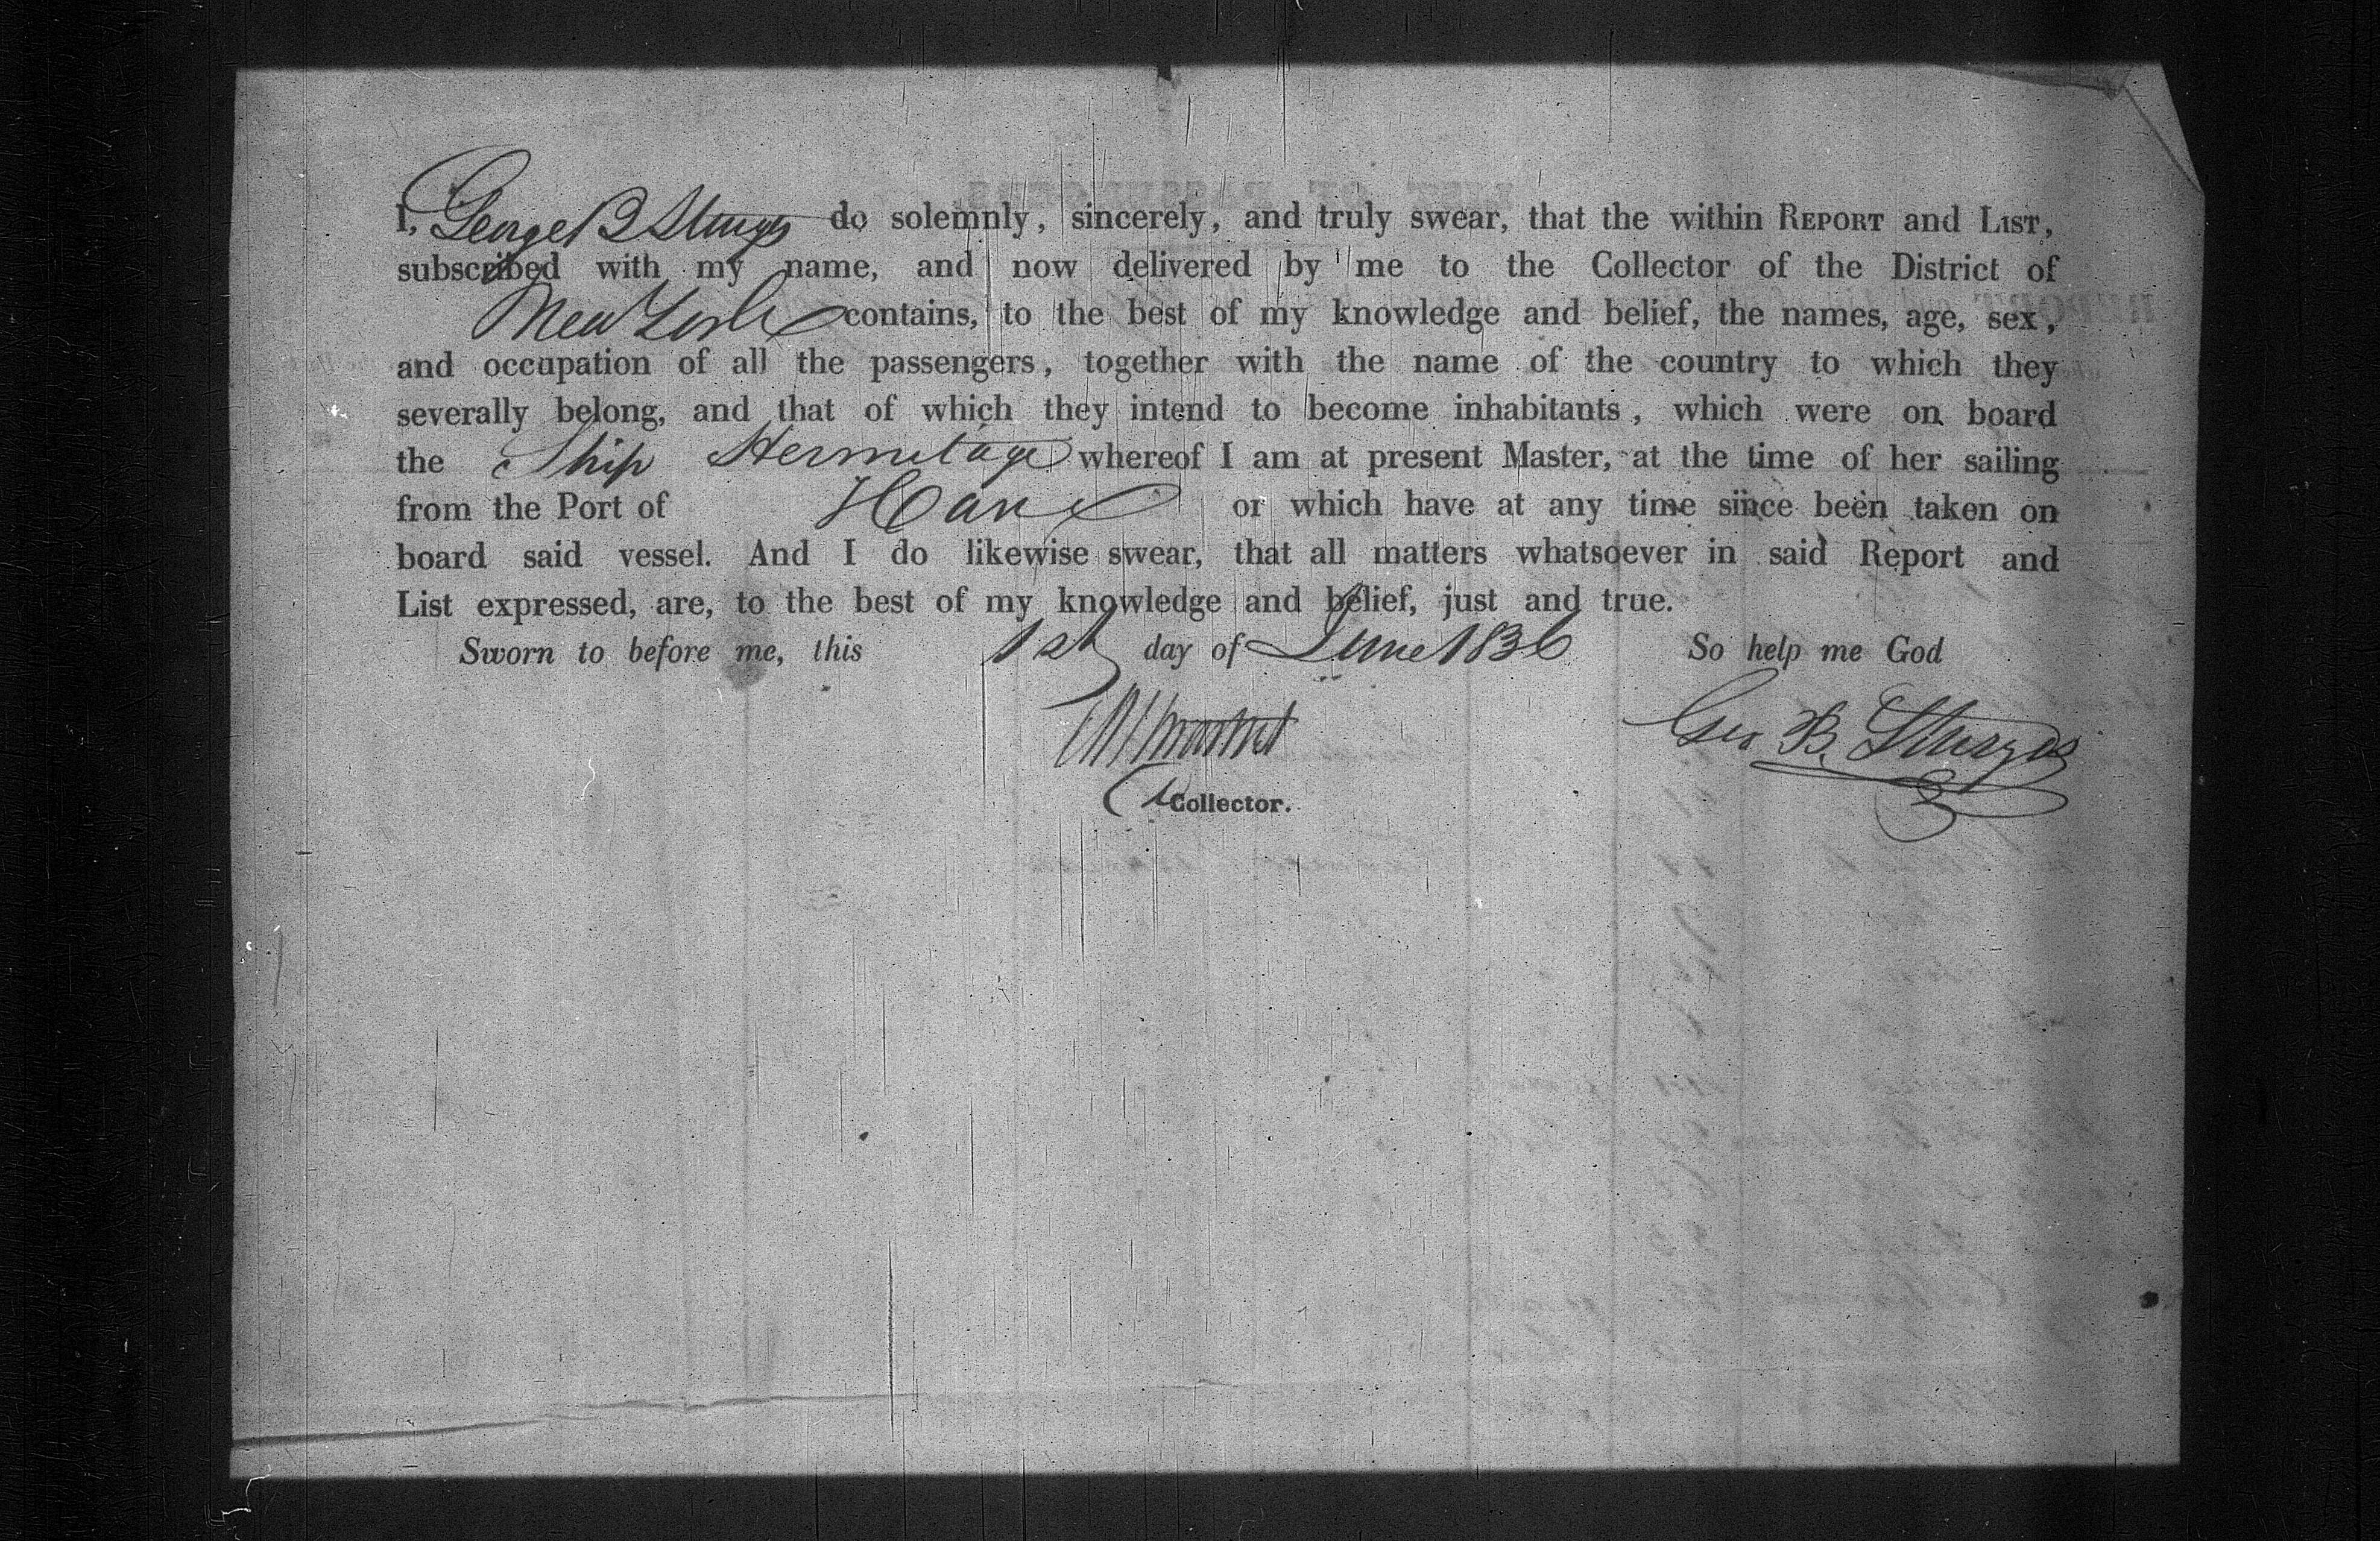 I, George B Sturges do solemnly, sincerely, and truly swear, that the within REPORT and LIST,
subscribed with my name, and now delivered by me to the Collector of the District of
New York contains, to the best of my knowledge and belief, the names, age, sex,
and occupation of all the passengers, together with the name of the country to which they
severally belong, and that of which they intend to become inhabitants, which were on board
the Ship Hermitage whereof I am at present Master, at the time of her sailing
from the Port of Havre or which have at any time since been taken on
board said vessel. And I do likewise swear, that all matters whatsoever in said Report and
List expressed, are, to the best of my knowledge and belief, just and true.
Sworn to before me, this 1st day of June 1836 So help me God
Geo B. Sturges
Collector.